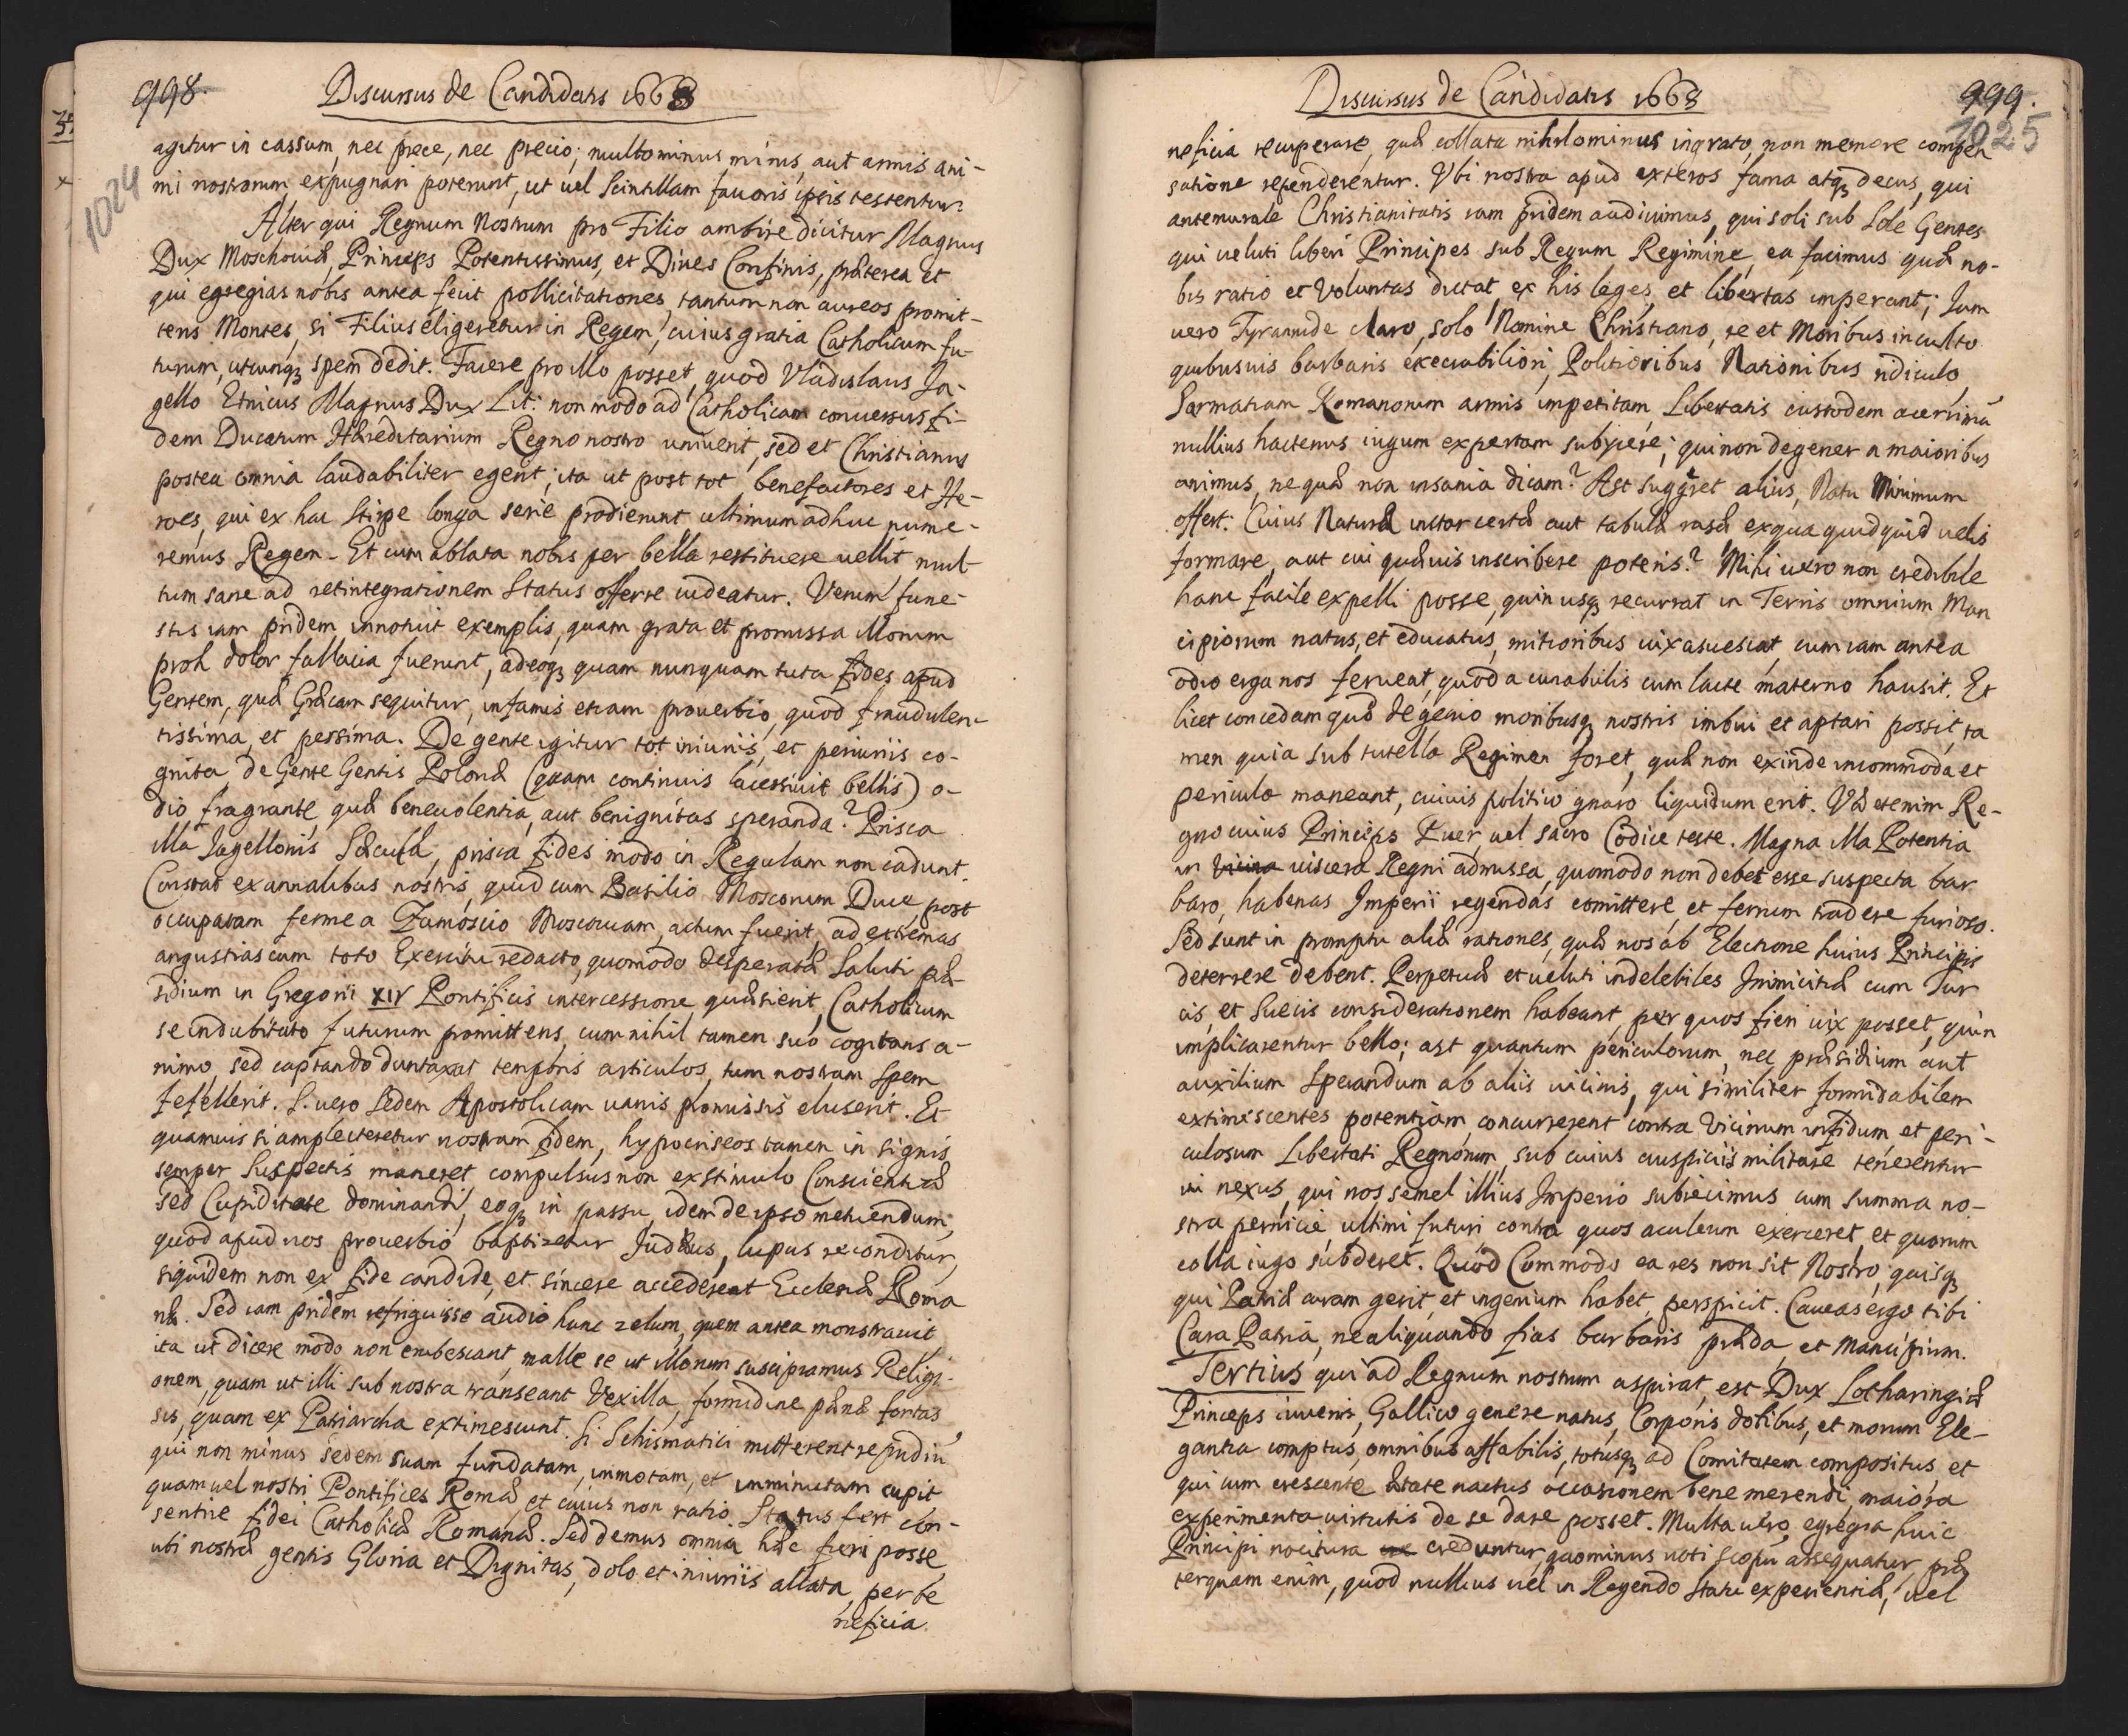 998.
Discursus de Candidatis 1668
1024
agitur in cassum, nec prece, nec precio; multo minus minis, aut armis ani-
mi nostrorum, expugnari poterunt, ut uel Scintillam fauoris ipsis testentur.
Alter qui Regnum Nostrum pro Filio ambire dicitur Magnus
Dux Moschouiæ, Princeps Potentissimus, et Diues Confinis, præterea et
qui egregias nobis antea fecit pollicitationes, tantum non aureos promit-
tens Montes, si Filius eligeretur in Regem, cuius gratia Catholicum fu-
turum, utcunq3 spem dedit. Facere pro illo posset, quod Vladislaus Ja-
gello Etnicus Magnus Dux Lit: non modo ad Catholicam conuersus fi-
dem Ducatum Hæreditarium Regno nostro uniuerit, sed et Christianus
postea omnia laudabiliter egerit; ita ut post tot benefactores et He-
roes, qui ex hac Stirpe longa serie prodierunt ultimum adhuc nume-
remus Regem. Et cum ablata nobis per bella restituere uellit mul-
tum sane ad retintegrationem Status offerre uideatur. Verum fune-
stis iam pridem innotuit exemplis, quam grata et promissa illorum
proh dolor fallacia fuerunt, adeoq3 quam nunquam tuta fides apud
Gentem, quæ Græcam sequitur, infamis etiam prouerbio, quod fraudulen-
tissima, et pessima. De gente igitur tot iniuriis, et periuriis co-
gnita, de Gente Gentis Polonæ (quam continuis lacessiuit bellis) o-
dio fragrante, quæ beneuolentia, aut benignitas speranda? Prisca
illa Jagellonis Sæcula, prisca fides modo in Regulam non cadunt.
Constat ex annalibus nostris, quid cum Basilio Moscorum Duce post
occupatam ferme a Zamoscio Moscouiam, actum fuerit, ad extremas
angustias cum toto Exercitu redacto, quomodo desperatæ Saluti præ-
sidium in Gregorii XIV Pontificis intercessione quæsierit, Catholicum
se indubitato futurum promittens, cum nihil tamen suo cogitans a-
nimo, sed captando duntaxat temporis articulos, tum nostram Spem
fefellerit. S. uero Sedem Apostolicam uanis promissis eluserit. Et
quamuis si amplecteretur nostram fidem, hypocriseos tamen in signis
semper Suspectis maneret compulsus non ex stimulo Conscientiæ
sed Cupiditate dominandi, eoq3 in passu, idem de ipso metuendum,
quod apud nos prouerbio baptizetur Judæus, lupus reconditur,
siquidem non ex fide candide, et sincere accederent Ecclesiæ Roma
næ. Sed iam pridem refriguisse audio hunc zelum, quem antea monstrauit
ita ut dicere modo non erubescant, malle se ut illorum suscipiamus Religi-
onem, quam ut illi sub nostra transeant Vexilla, formidine pænæ fortas
sis, quam ex Patriarcha extimescunt. Si Schismatici mitterent repudiũ,
qui non minus Sedem suam fundatam, immotam, et imminutam cupit
quam uel nostri Pontifices Romæ, et cuius non ratio Status fert con-
sentire fidei Catholicæ Romanæ. Sed demus omnia hæc fieri posse,
ubi nostræ gentis Gloria et Dignitas, dolo et iniuriis allata, per be
neficia.
Discursus de Candidatis 1668
999.
1025
neficia recuperare, quæ collata nihilominus ingrato, non memore compen
satione rependerentur. Vbi nostra apud exteros fama atq3 decus, qui
antemurale Christianitatis iam pridem audiuimus, qui soli sub Sole Gentes
qui ueluti liberi Principes sub Regum Regimine, ea facimus quæ no-
bis ratio et Voluntas dictat, ex his leges, et libertas imperant; Jam
uero Tyrannide claro, solo Nomine Christiano, re et Moribus inculto
quibusuis barbaris execrabiliori, Politioribus Nationibus ridiculo,
Sarmatiam Romanorum armis impetitam, Libertatis custodem acerrimã
nullius hactenus iugum expertam subijcere; qui non degener a maioribus
animus, ne quæ non insania dicam? Ast suggeret alius, Natu Minimum
offert. Cuius Naturæ instar ceræ aut tabulæ rasæ ex qua quidquid uelis
formare, aut cui quæuis inscribere poteris? Mihi uero non credibile
hanc facile expelli posse, quin usq3 recurrat in Terris omnium Man
cipiorum natus, et educatus, mitioribus uix asuescat, cum iam antea
odio erga nos ferueat, quod a cunabulis cum lacte materno hausit. Et
licet concedam quod de genio moribusq3 nostris imbui et aptari possit, ta
men quia sub tutella Regimen foret, quæ non exinde incommoda et
pericula maneant, cuiuis politico gnaro liquidum erit. Væ etenim Re-
gno cuius Princeps Puer, uel sacro Codice teste. Magna illa Potentia
in uiscera Regni admissa, quomodo non debet esse suspecta bar
baro, habenas Imperii regendas comittere, et ferrum tradere furioso.
Sed sunt in promptu aliæ rationes, quæ nos ab Electione huius Principis
deterrere debent. Perpetuæ et ueluti indelebiles Inimicitiæ cum Tur
cis, et Suecis considerationem habeant, per quos fieri uix posset, quin
implicarentur bello; ast quantum periculorum, nec præsidium aut
auxilium Sperandum ab aliis uicinis, qui similiter formidabilem
extimescentes potentiam, concurrerent contra Vicinum infidum et peri-
culosum Libertati Regnorum, sub cuius auspiciis militare tenerentur
ui nexus, qui nos semel illius Imperio subiecimus cum summa no-
stra pernicie, ultimi futuri contra quos aculeum exerceret, et quorum
colla iugo subderet. Quod Commodo ea res non sit Nostro, quisq3
qui Patriæ curam gerit, et ingenium habet, perspicit. Caueas ergo tibi
Cara Patria, ne aliquando fias barbaris præda, et Mancipium.
Tertius qui ad Regnum nostrum aspirat, est Dux Lotharingiæ
Princeps iuuenis, Gallico genere natus, Corporis dotibus, et morum Ele-
gantia comptus, omnibus affabilis, totusq3 ad Comitatem compositus, et
qui cum crescente ætate nactus occasionem bene merendi, maiora
experimenta uirtutis de se dare posset. Multa uero, egregia huic
Principi nocitura creduntur, quominus uoti scopũ assequatur, præ
terquam enim, quod nullius uel in Regendo Statu experientiæ, uel